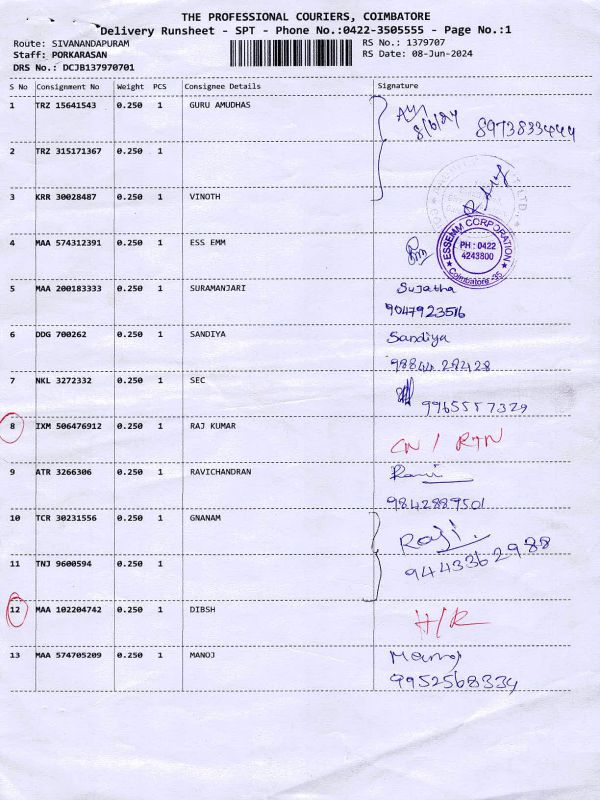 THE PROFESSIONAL COURIERS, COIMBATORE
Delivery Runsheet - SPT - Phone No.:0422-3505555 - Page No.:1
Route: SIVANANDAPURAM RS No.: 1379707
Staff: PORKARASAN RS Date: 08-Jun-2024
DRS No.: DCJB137970701
S No Consignment No Weight PCS Consignee Details Signature
1 TRZ 15641543 0.250 1 GURU AMUDHAS
8/6/24 8973833444
2 TRZ 315171367 0.250 1
3 KRR 30028487 0.250 1 VINOTH
4 MAA 574312391 0.250 1 ESS EMM
ESSEMM CORPORATION
PH : 0422
4243800
Coimbatore-35
5 MAA 200183333 0.250 1 SURAMANJARI Sujatha
9047923516
6 DDG 700262 0.250 1 SANDIYA Sandiya
98844 28428
7 NKL 3272332 0.250 1 SEC
9965557329
8 IXM 506476912 0.250 1 RAJ KUMAR CN / RTN
9 ATR 3266306 0.250 1 RAVICHANDRAN Ravi
9842889501
10 TCR 30231556 0.250 1 GNANAM Raji.
9443362988
11 TNJ 9600594 0.250 1
12 MAA 102204742 0.250 1 DIBSH H/R
13 MAA 574705209 0.250 1 MANOJ Manoj
9952568334